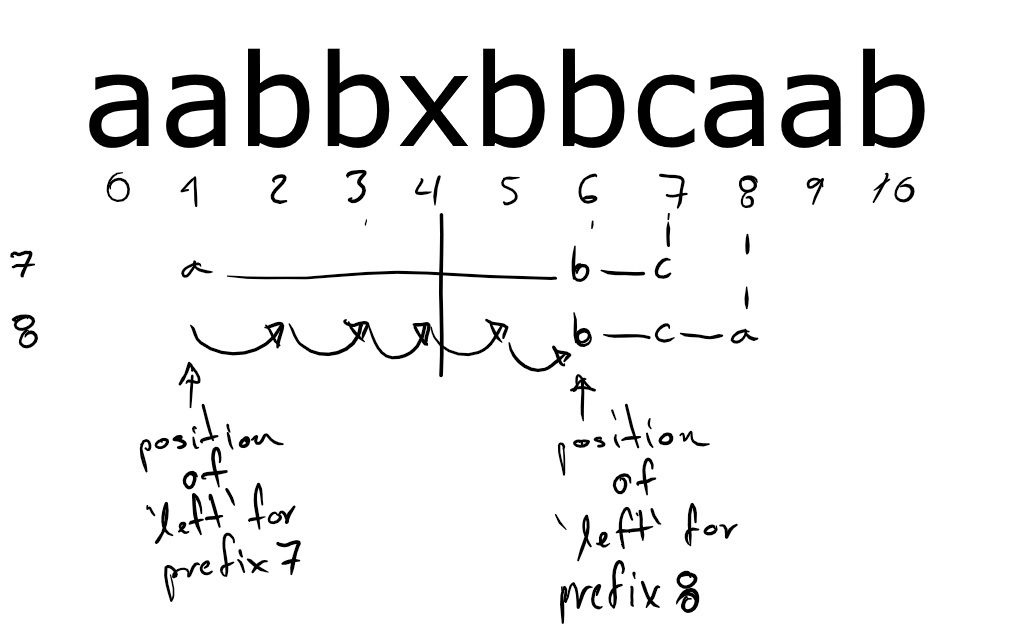 aabbxbbcaab
0 1 2 3 4 5 6 7 8 9 10
7 a b c
8 b c a
position
of
'left' for
prefix 7
position
of
'left' for
prefix 8